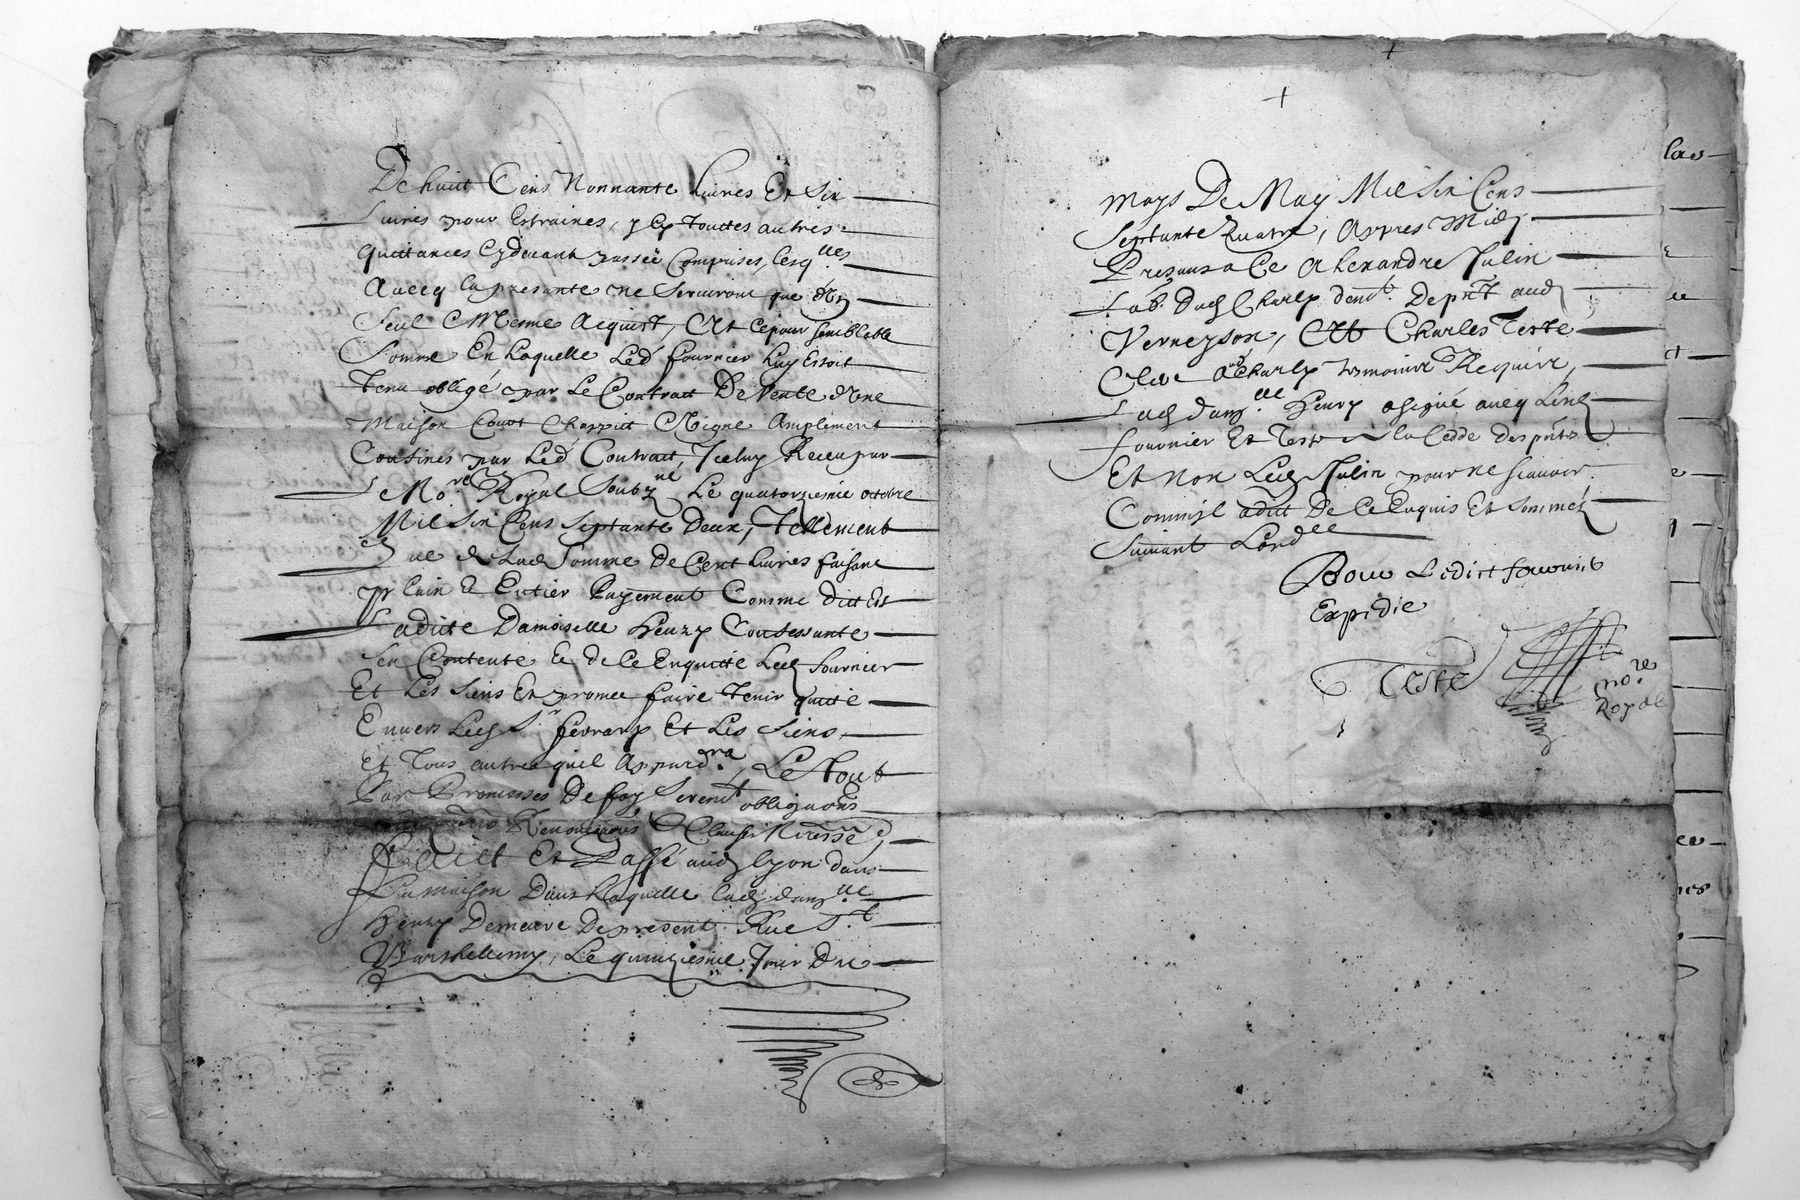 De huict Cens Nonnante Livres Et Six
Livres pour Estraines, y Touttes autres
quittances Cydevant passée Comprises, lesq.lles
Avecq la presante ne Serviront que d'Un
Seul & Mesme Acquist, Et Ce pour semblable
Somme En laquelle Led fournier Luy Estoit
Tenu obligé par Le Contract De Vente d'Une
Maison Court & Vigne Amplement
Confines par Led Contract Iceluy Receu par
Le No.re Royal Soubz.né Le quatorziesme octobre
Mil Six Cens Septante Deux, Tellement
que de Lad Somme De Cent Livres faisant
plain & Entier Payement Comme dict Est
Ladicte Damoiselle Henry Confessante
Sen Contente & de Ce Enquitte Led fournier
Et Les Siens En promet faire Tenir quitte
Envers Led S.r Et Les Siens,
Et Tous autres quil Appard.ra, Le Tout
Par Promesses De foy Serem.t obligaons
Renonciaons & Clauses
Faict Et Passé aud Lyon dans
La maison Dans Laquelle lad dam.lle
Henry Demeure De present Rue S.t
Barthellemy, Le quinziesme Jour du
+
+
Moys De May Mil Six Cens
Septante Quatre, Appres Midy
Presans a Ce Alexandre Julin
Lab. Dud Charly dem.t De pnt aud
Verneyson, Et Charles Teste
Clerc aud Charly Tesmoins Requis,
Lad dam.lle Henry a signé avecq Led
fournier Et Teste a la Cedde des pntes
Et Non Led Julin pour ne Scavoir
Comme il a dict De Ce Enquis Et Sommé
Suivant Lord.ce
Pour Ledict fournier
Expedie
Teste
no.re
Royal